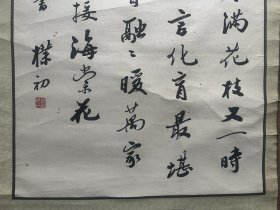 满花枝又一时
言化育最堪
融〻暖万家
接海棠花
朴初